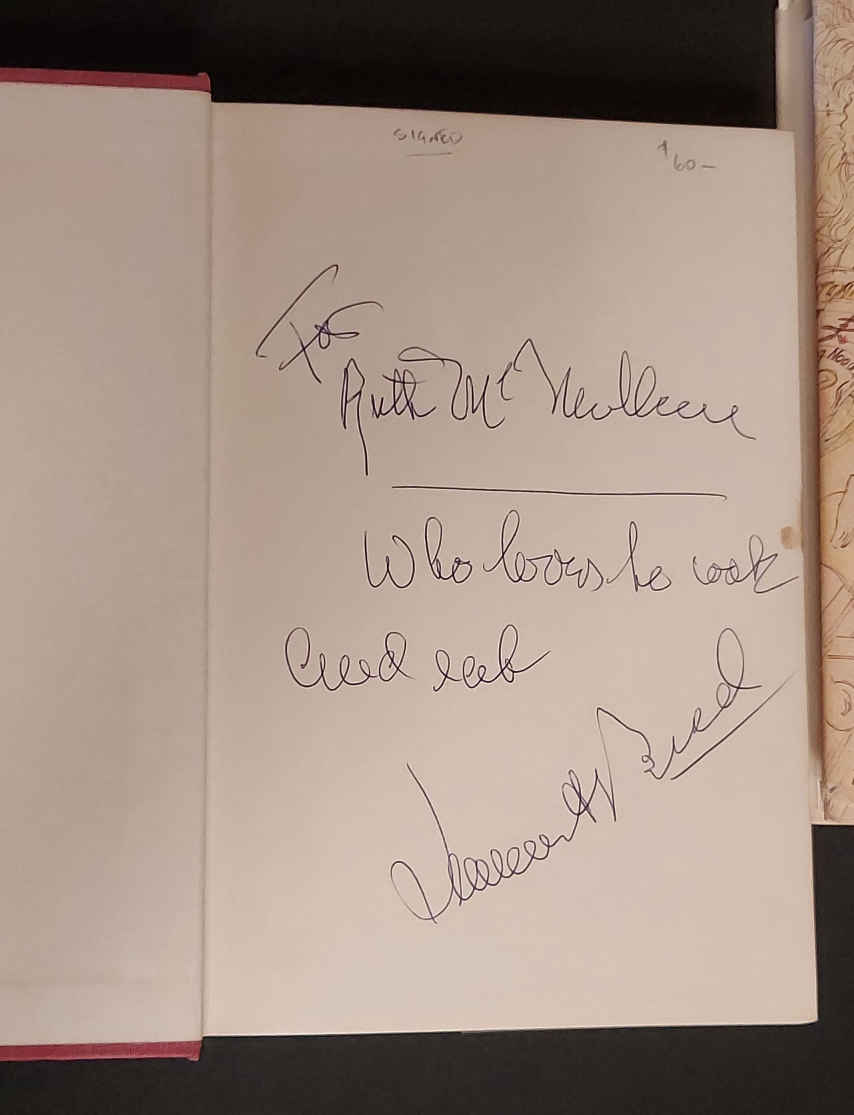 SIGNED
$60-
For
Ruth
Who loves to cook
and eat
James A Beard